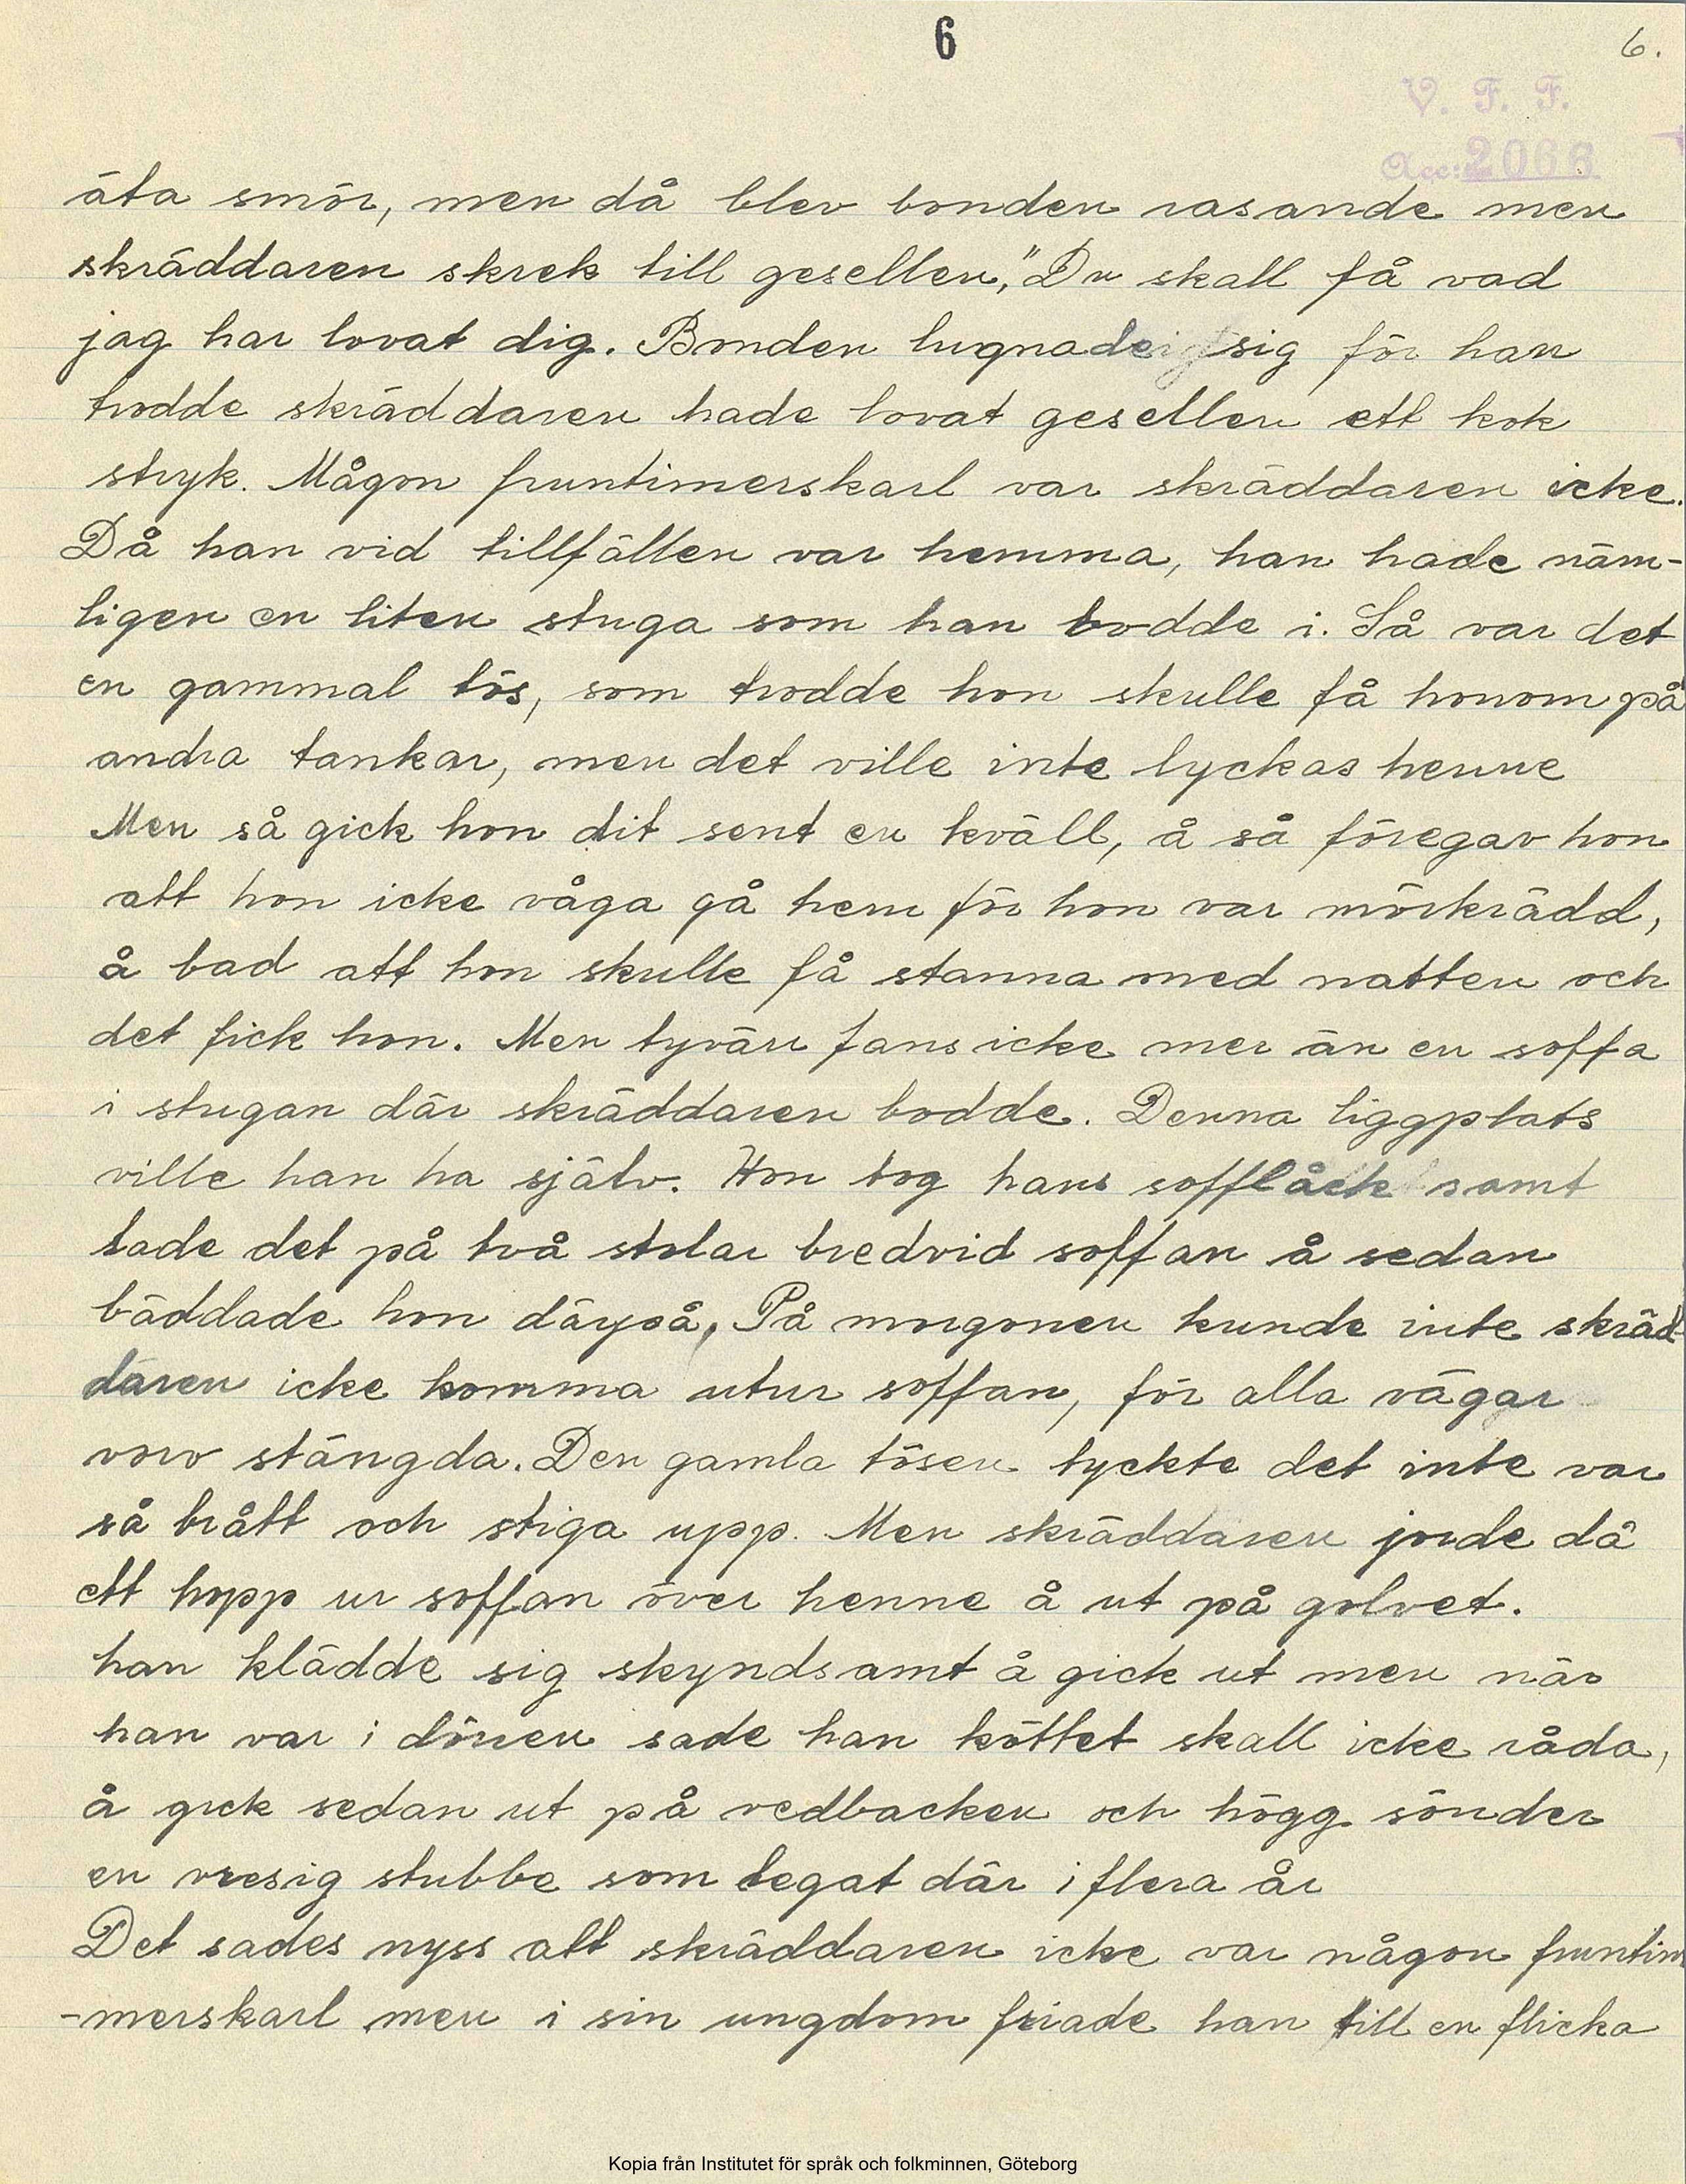 6
6.
V. F. F.
Acc: 2066
äta smör, men då blev bonden rasande men
skräddaren skrek till gesellen, "Du skall få vad
jag har lovat dig. Bonden lugnade sig för han
trodde skräddaren hade lovat gesellen ett kok
stryk. Någon fruntimerskarl var skräddaren icke.
Då han vid tillfällen var hemma, han hade näm-
ligen en liten stuga som han bodde i. Så var det
en gammal tös, som trodde hon skulle få honom på
andra tankar, men det ville inte lyckas henne
Men så gick hon dit sent en kväll, å så föregav hon
att hon icke våga gå hem för hon var mörkrädd,
å bad att hon skulle få stanna med natten och
det fick hon. Men tyvärr fans icke mer än en soffa
i stugan där skräddaren bodde. Denna liggplats
ville han ha själv. Hon tog hans sofflåck samt
lade det på två stolar bredvid soffan å sedan
bäddade hon därpå. På morgonen kunde inte skräd-
daren icke komma utur soffan, för alla vägar
voro stängda. Den gamla tösen tyckte det inte var
så brått och stiga upp. Men skräddaren jorde då
ett hopp ur soffan över henne å ut på golvet.
han klädde sig skyndsamt å gick ut men när
han var i dörren sade han köttet skall icke råda,
å gick sedan ut på vedbacken och högg sönder
en vresig stubbe som legat där i flera år
Det sades nyss att skräddaren icke var någon fruntim
-merskarl men i sin ungdom friade han till en flicka
Kopia från Institutet för språk och folkminnen, Göteborg